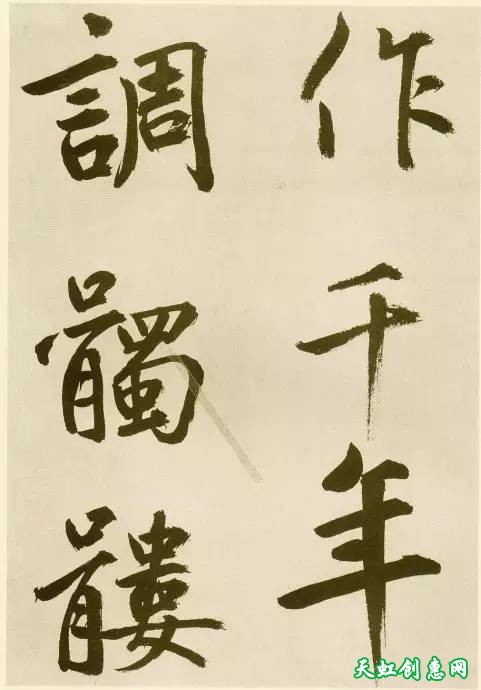 作千年
調髑髏
天虹创惠网